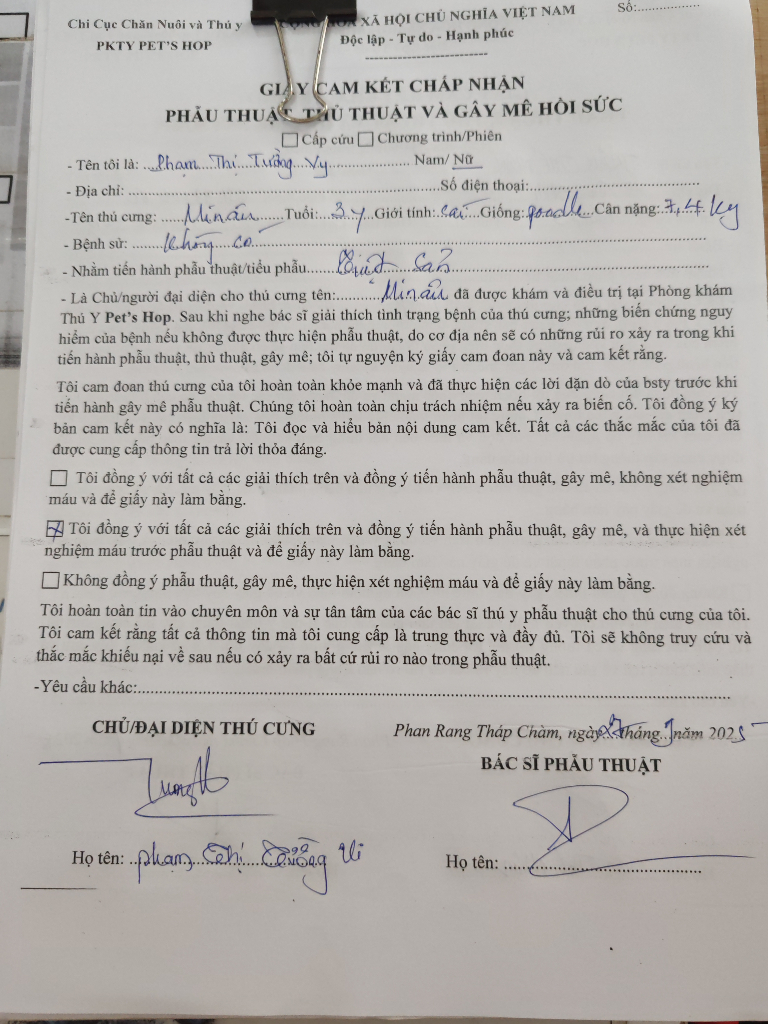 Chi Cục Chăn Nuôi và Thú y
CỘNG HÒA XÃ HỘI CHỦ NGHĨA VIỆT NAM
Số:...............
PKTY PET'S HOP
Độc lập - Tự do - Hạnh phúc
GIẤY CAM KẾT CHẤP NHẬN
PHẪU THUẬT, THỦ THUẬT VÀ GÂY MÊ HỒI SỨC
☐ Cấp cứu ☐ Chương trình/Phiên
- Tên tôi là: Phạm Thị Tường Vy Nam/ Nữ
- Địa chỉ: ............ Số điện thoại:............
-Tên thú cưng: Minấu Tuổi: 3y Giới tính: cái Giống: poodle Cân nặng: 7,4 kg
- Bệnh sử: không có
- Nhằm tiến hành phẫu thuật/tiểu phẫu sản
- Là Chủ/người đại diện cho thú cưng tên: Minấu đã được khám và điều trị tại Phòng khám
Thú Y Pet's Hop. Sau khi nghe bác sĩ giải thích tình trạng bệnh của thú cưng; những biến chứng nguy
hiểm của bệnh nếu không được thực hiện phẫu thuật, do cơ địa nên sẽ có những rủi ro xảy ra trong khi
tiến hành phẫu thuật, thủ thuật, gây mê; tôi tự nguyện ký giấy cam đoan này và cam kết rằng.
Tôi cam đoan thú cưng của tôi hoàn toàn khỏe mạnh và đã thực hiện các lời dặn dò của bsty trước khi
tiến hành gây mê phẫu thuật. Chúng tôi hoàn toàn chịu trách nhiệm nếu xảy ra biến cố. Tôi đồng ý ký
bản cam kết này có nghĩa là: Tôi đọc và hiểu bản nội dung cam kết. Tất cả các thắc mắc của tôi đã
được cung cấp thông tin trả lời thỏa đáng.
☐ Tôi đồng ý với tất cả các giải thích trên và đồng ý tiến hành phẫu thuật, gây mê, không xét nghiệm
máu và để giấy này làm bằng.
☒ Tôi đồng ý với tất cả các giải thích trên và đồng ý tiến hành phẫu thuật, gây mê, và thực hiện xét
nghiệm máu trước phẫu thuật và để giấy này làm bằng.
☐ Không đồng ý phẫu thuật, gây mê, thực hiện xét nghiệm máu và để giấy này làm bằng.
Tôi hoàn toàn tin vào chuyên môn và sự tân tâm của các bác sĩ thú y phẫu thuật cho thú cưng của tôi.
Tôi cam kết rằng tất cả thông tin mà tôi cung cấp là trung thực và đầy đủ. Tôi sẽ không truy cứu và
thắc mắc khiếu nại về sau nếu có xảy ra bất cứ rủi ro nào trong phẫu thuật.
-Yêu cầu khác:............
CHỦ/ĐẠI DIỆN THÚ CƯNG
Phan Rang Tháp Chàm, ngày 27 tháng năm 2025
BÁC SĨ PHẪU THUẬT
Họ tên: phạm Thị Tường Vi
Họ tên: ............